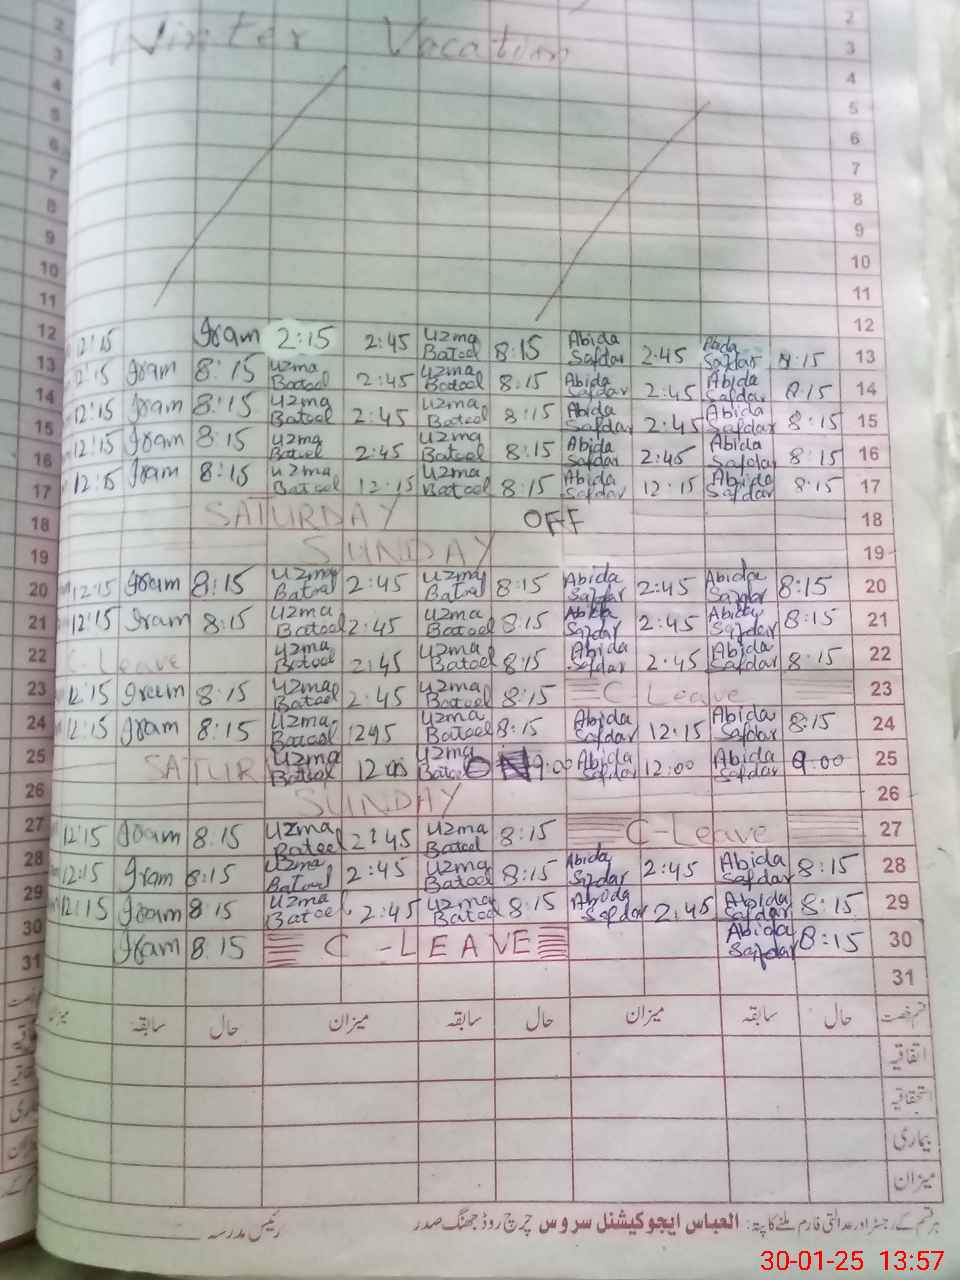 2
3
Winter Vacation
4
5
6
7
8
9
10
11
12
12:15 Iram 2:15 2:45 Uzma Batool 8:15 Abida Safdar 2:45 Abida Safdar 8:15 13
12:15 Iram 8:15 Uzma Batool 2:45 Uzma Batool 8:15 Abida Safdar 2:45 Abida Safdar 8:15 14
12:15 Iram 8:15 Uzma Batool 2:45 Uzma Batool 8:15 Abida Safdar 2:45 Abida Safdar 8:15 15
12:15 Iram 8:15 Uzma Batool 2:45 Uzma Batool 8:15 Abida Safdar 2:45 Abida Safdar 8:15 16
12:15 Iram 8:15 Uzma Batool 12:15 Uzma Batool 8:15 Abida Safdar 12:15 Abida Safdar 8:15 17
SATURDAY OFF 18
SUNDAY 19
12:15 Iram 8:15 Uzma Batool 2:45 Uzma Batool 8:15 Abida Safdar 2:45 Abida Safdar 8:15 20
12:15 Iram 8:15 Uzma Batool 2:45 Uzma Batool 8:15 Abida Safdar 2:45 Abida Safdar 8:15 21
C-Leave Uzma Batool 2:45 Uzma Batool 8:15 Abida Safdar 2:45 Abida Safdar 8:15 22
12:15 Iram 8:15 Uzma Batool 2:45 Uzma Batool 8:15 C Leave 23
12:15 Iram 8:15 Uzma Batool Uzma Batool 8:15 Abida Safdar 12:15 Abida Safdar 8:15 24
SATUR Uzma Batool Uzma 9:00 Abida Safdar 12:00 Abida Safdar 9:00 25
SUNDAY 26
12:15 Iram 8:15 Uzma Batool 2:45 Uzma Batool 8:15 C-Leave 27
12:15 Iram 8:15 Uzma Batool 2:45 Uzma Batool 8:15 Abida Safdar 2:45 Abida Safdar 8:15 28
12:15 Iram 8:15 Uzma Batool 2:45 Uzma Batool 8:15 Abida Safdar 2:45 Abida Safdar 8:15 29
Iram 8:15 C-LEAVE Abida Safdar 8:15 30
31
قسم رخصت حال سابقہ میزان حال سابقہ میزان حال سابقہ میزان
اتفاقیہ
استحقاقیہ
بیماری
میزان
ہر قسم کے رجسٹر اور عدالتی فارم ملنے کا پتہ: العباس ایجوکیشنل سروس چرچ روڈ جھنگ صدر رئیس مدرسہ
30-01-25 13:57